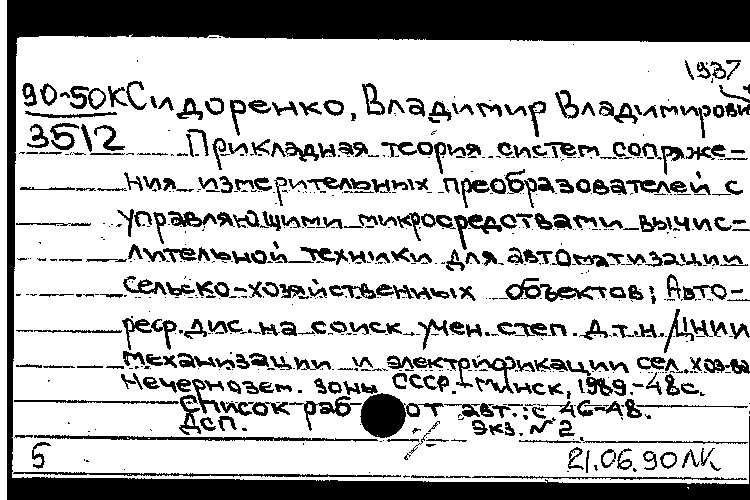 1937
90-50К Сидоренко, Владимир Владимирович
3512 Прикладная теория систем сопряже-
ния измерительных преобразователей с
управляющими микросредствами вычис-
лительной техники для автоматизации
сельско-хозяйственных объектов; Авто-
реф. дис. на соиск учен. степ. д.т.н. / ЦНИИ
механизации и электрификации сел. хоз-ва
Нечернозем. зоны СССР.-Минск, 1989.-48с.
Список работ авт.: с 46-48.
Дсп. Экз. №2.
5 21.06.90 ЛК